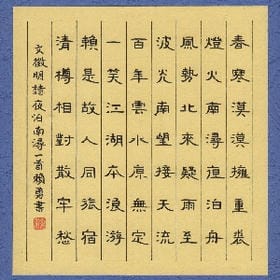 春寒漠漠擁重裘
燈火南潯夜泊舟
風勢北來疑雨至
波光南望接天流
百年雲水原無定
一笑江湖本浪游
賴是故人同旅宿
清樽相對散牢愁
文徵明詩夜泊南潯一首賴勇書